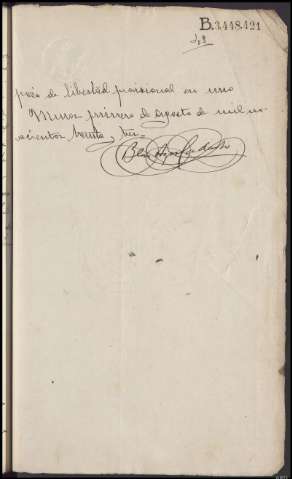 B.3.448.421
pieza de libertad provisional en uno
Muros primero de agosto de mil no-
vecientos treinta y tres=